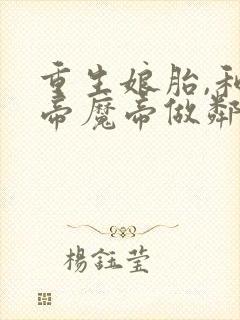 重生娘胎,和
帝魔帝做鄰
楊鈺瑩